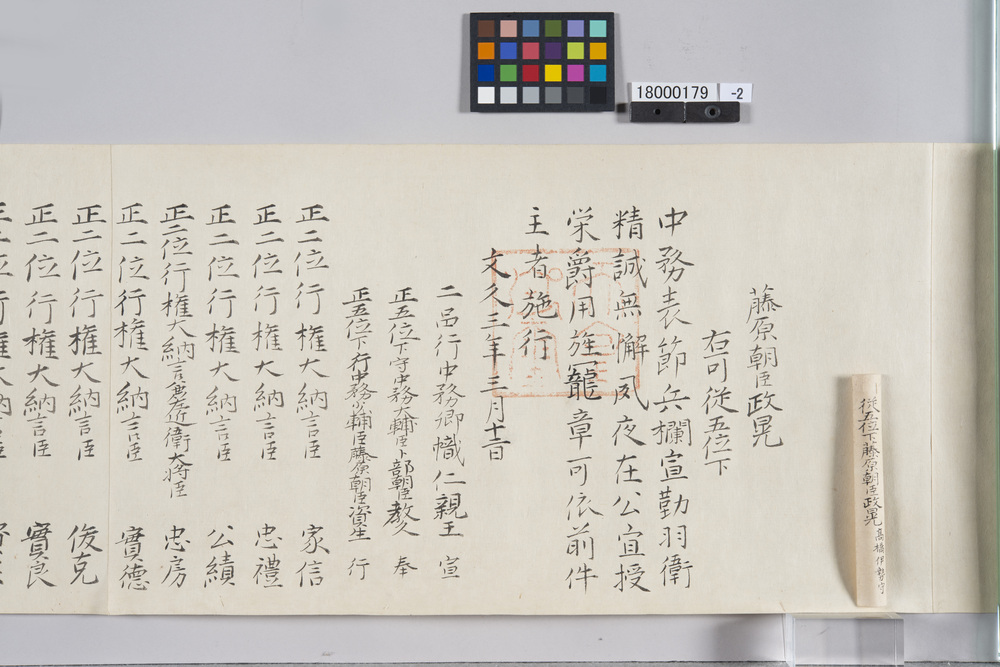 18000179 -2
従五位下藤原朝臣政晃 高橋伊勢守
藤原朝臣政晃
右可従五位下
中務表節兵欄宣勤羽衛
精誠無懈夙夜在公宣授
栄爵用旌寵章可依前件
主者施行
文久三年三月十一日
二品行中務卿幟仁親王 宣
正五位下守中務大輔臣卜部朝臣教久 奉
正五位下行中務少輔臣藤原朝臣資生 行
正二位行権大納言臣 家信
正二位行権大納言臣 忠禮
正二位行権大納言臣 公績
正二位行権大納言兼左近衛大将臣 忠房
正二位行権大納言臣 實德
正二位行権大納言臣 俊克
正二位行権大納言臣 實良
正二位行権大納言臣